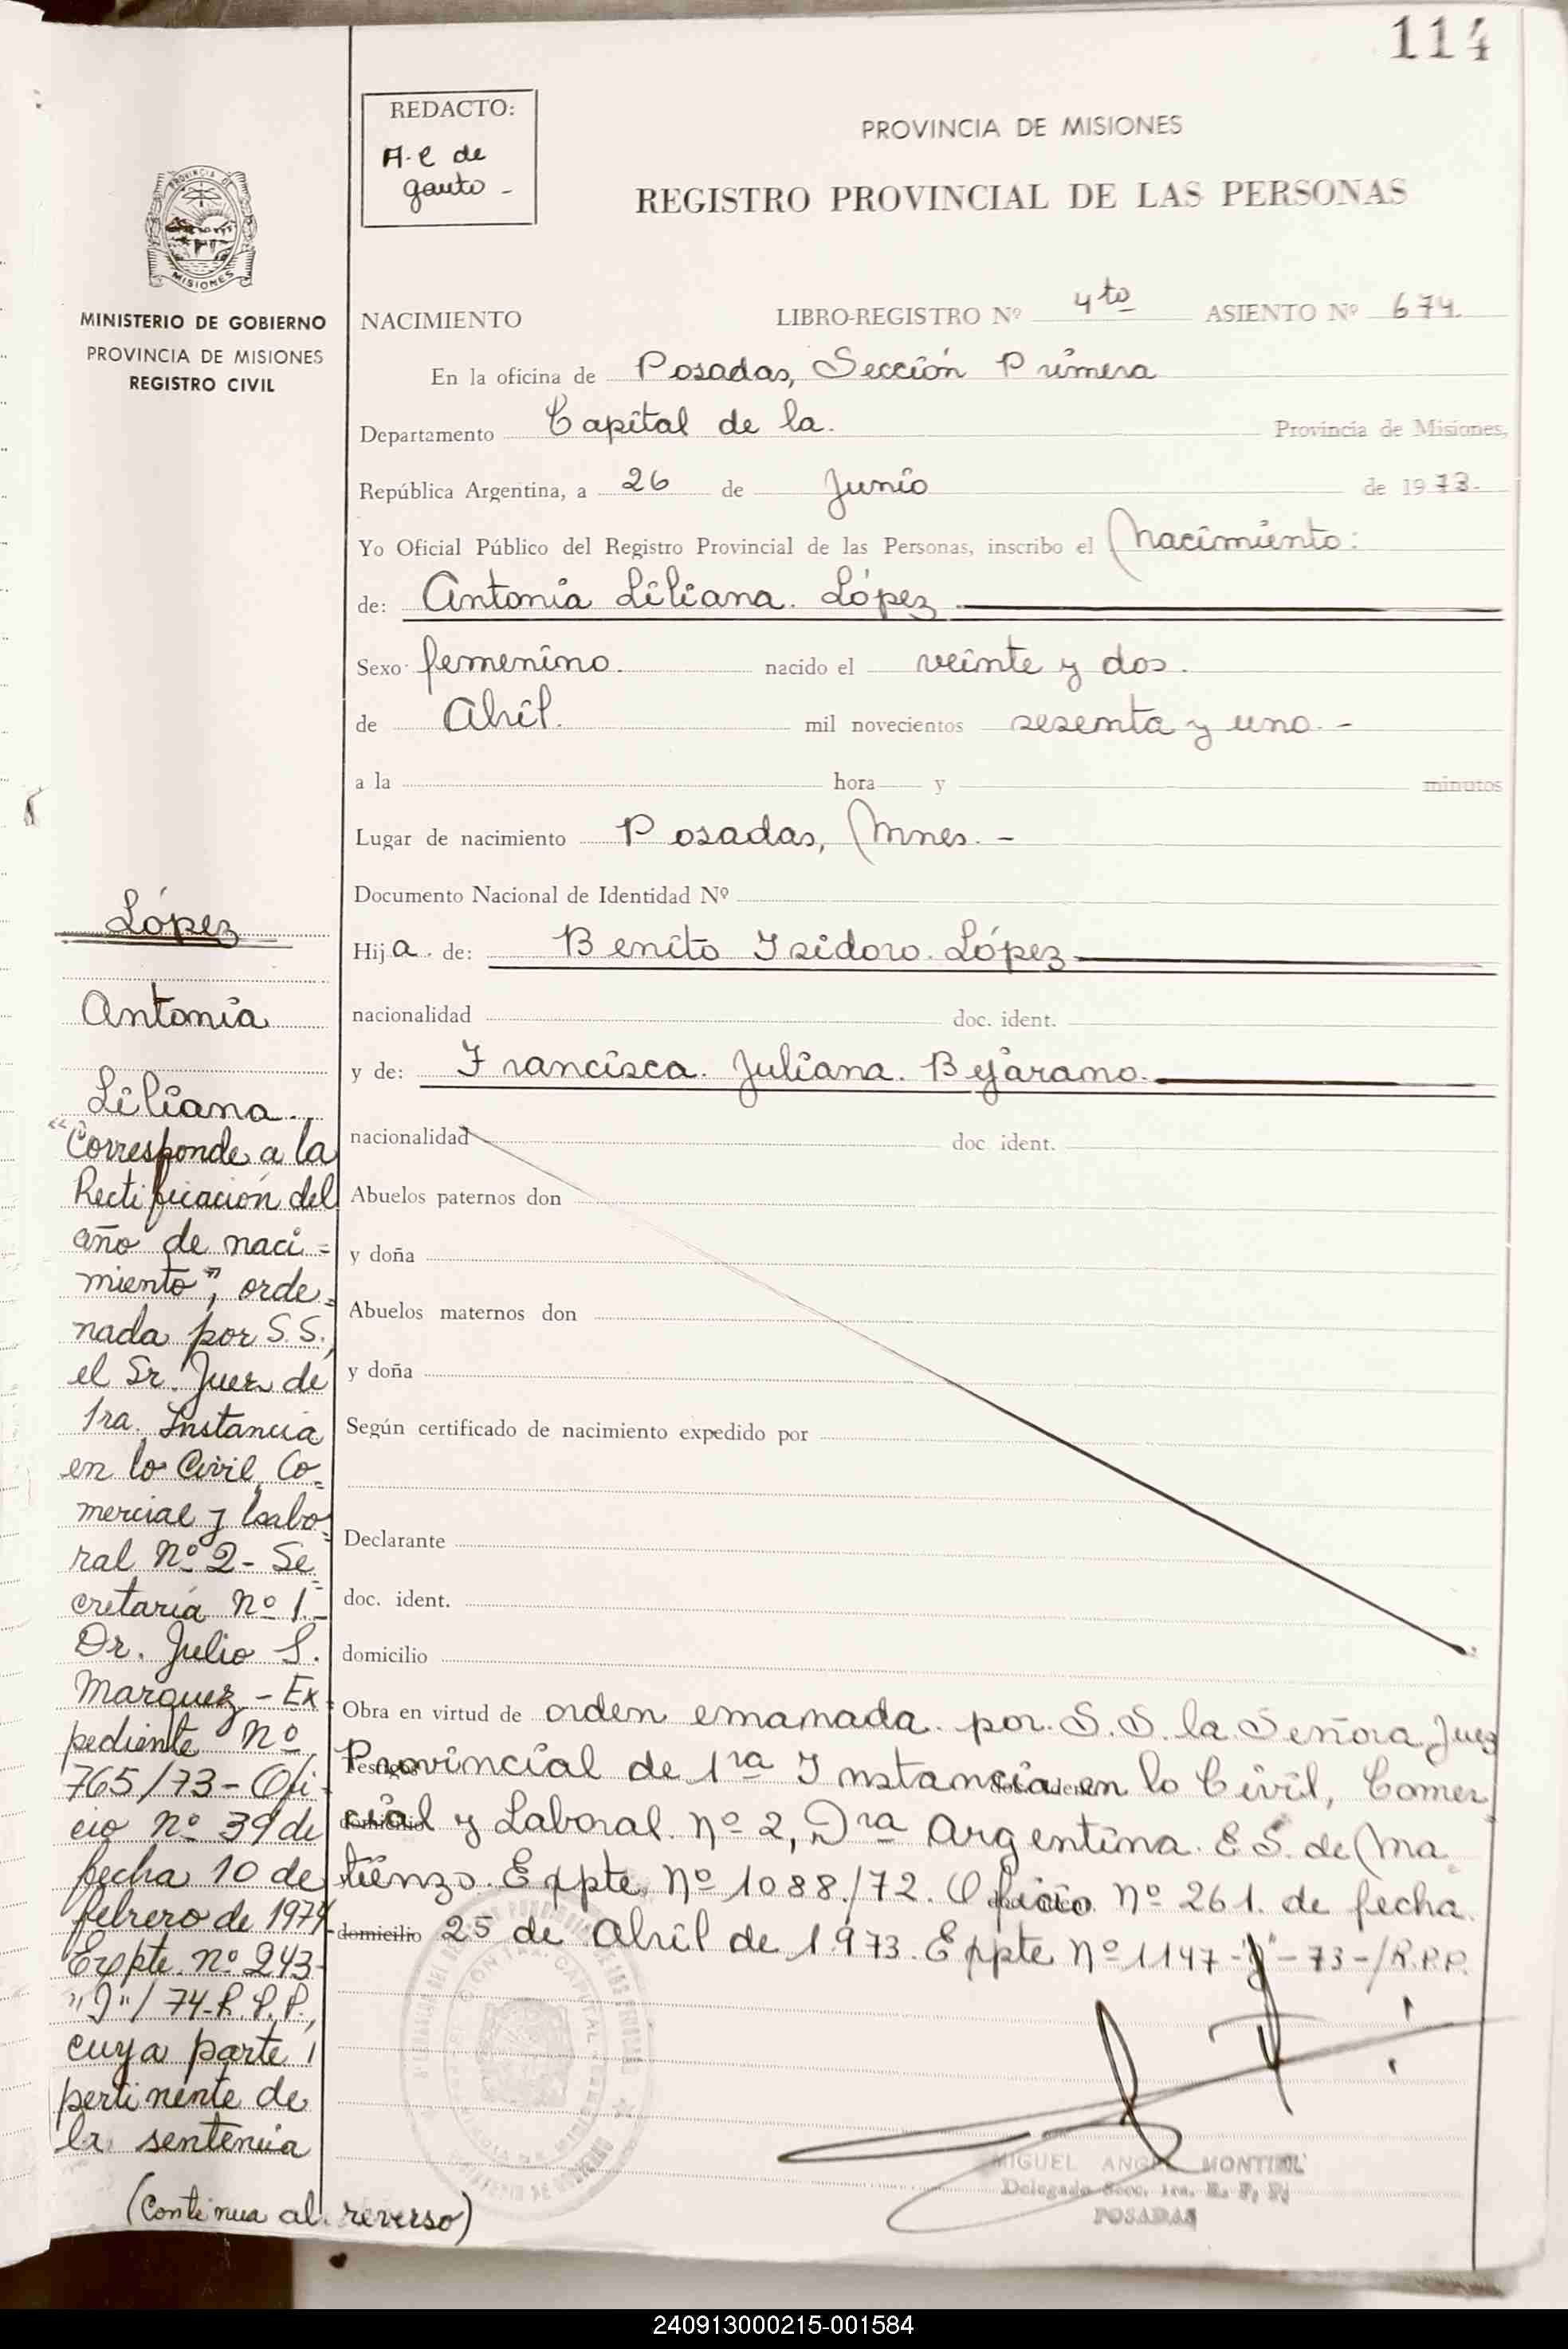 114
REDACTO:
A. e de
gauto -
PROVINCIA DE MISIONES
REGISTRO PROVINCIAL DE LAS PERSONAS
PROVINCIA DE
MISIONES
MINISTERIO DE GOBIERNO
PROVINCIA DE MISIONES
REGISTRO CIVIL
NACIMIENTO LIBRO-REGISTRO Nº 4to ASIENTO Nº 674.
En la oficina de Posadas, Sección Primera
Departamento Capital de la. Provincia de Misiones,
República Argentina, a 26 de Junio de 1973.-
Yo Oficial Público del Registro Provincial de las Personas, inscribo el Nacimiento:
de: Antonia Liliana. López
Sexo femenino. nacido el veinte y dos.
de Abril. mil novecientos sesenta y uno. -
a la hora y minutos
Lugar de nacimiento Posadas, Mnes. -
Documento Nacional de Identidad Nº
Hija. de: Benito Isidoro. López
nacionalidad doc. ident.
y de: Francisca. Juliana. Bejarano.
nacionalidad doc ident.
Abuelos paternos don
y doña
Abuelos maternos don
y doña
Según certificado de nacimiento expedido por
Declarante
doc. ident.
domicilio
Obra en virtud de orden emanada. por. S. S. la Señora Juez
Provincial de 1ra Instancia en lo Civil, Comer
cial y Laboral. nº 2, Dra Argentina. E S. de Ma
tienzo. Expte. Nº 1088./72. Oficio Nº 261. de fecha.
domicilio 25 de Abril de 1.973. Eppte Nº 1147-"J"-73-/R.P.P.
López
Antonia
Liliana.
"Corresponde a la
Rectificación del
año de naci=
miento", orde=
nada por S.S.,
el Sr. Juez de
1ra. Instancia
en lo Civil, Co=
mercial y Labo=
ral nº 2- Se=
cretaría nº 1.-
Dr. Julio S.
Marquez - Ex=
pediente nº
765/73- Ofi-
cio nº 39 de
fecha 10 de
febrero de 1974-
Expte. nº 243-
"J"/ 74-R.P.P.,
cuya parte
pertinente de
la sentencia
(Continua al reverso)
MIGUEL ANGEL MONTIEL
Delegado Secc. 1ra. R. P. P.
POSADAS
240913000215-001584